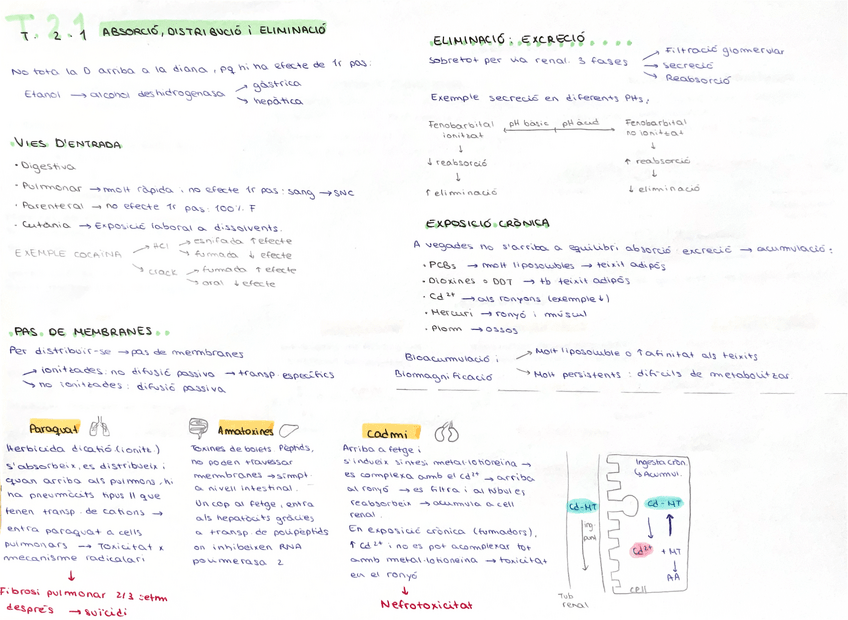 T.2.1
T. 2. 1 ABSORCIÓ, DISTRIBUCIÓ i ELIMINACIÓ
No tota la D arriba a la diana, pq hi ha efecte de 1r pas:
Etanol → alcohol deshidrogenasa → gàstrica
→ hepàtica
VIES D'ENTRADA
· Digestiva
· Pulmonar → molt ràpida i no efecte 1r pas: sang → SNC
· Parenteral → no efecte 1r pas: 100% F
· Cutània → Exposició laboral a dissolvents.
EXEMPLE COCAÏNA → HCl → esnifada ↑ efecte
→ fumada ↓ efecte
→ crack → fumada ↑ efecte
→ oral ↓ efecte
PAS DE MEMBRANES
Per distribuir-se → pas de membranes
→ ionitzades: no difusió passiva → transp. específics
→ no ionitzades: difusió passiva
Paraquat
Herbicida dicatió (ionitz.)
s'absorbeix, es distribueix i
quan arriba als pulmons, hi
ha pneumòcits tipus II que
tenen transp. de cations →
entra paraquat a cells
pulmonars → Toxicitat x
mecanisme radicalari
↓
Fibrosi pulmonar 2/3 setm
després → suïcidi
Amatoxines
Toxines de bolets. Pèptids,
no poden travessar
membranes → símpt
a nivell intestinal.
Un cop al fetge, entra
als hepatòcits gràcies
a transp de polipèptids
on inhibeixen RNA
polimerasa 2
Cadmi
Arriba a fetge i
s'indueix síntesi metal·lotioneïna →
es complexa amb el Cd²⁺ → arriba
al ronyó → es filtra i al túbul es
reabsorbeix → acumula a cell
renal.
En exposició crònica (fumadors),
↑ Cd²⁺ i no es pot acomplexar tot
amb metal·lotioneïna → toxicitat
en el ronyó
↓
Nefrotoxicitat
ELIMINACIÓ i EXCRECIÓ
Sobretot per via renal. 3 fases → Filtració glomerular
→ secreció
→ Reabsorció
Exemple secreció en diferents pHs:
Fenobarbital ionitzat ← pH bàsic | pH àcid → Fenobarbital no ionitzat
↓ reabsorció ↑ reabsorció
↑ eliminació ↓ eliminació
EXPOSICIÓ CRÒNICA
A vegades no s'arriba a equilibri absorció excreció → acumulació:
· PCBs → molt liposolubles → teixit adipós
· Dioxines = DDT → tb teixit adipós
· Cd²⁺ → als ronyons (exemple ↓)
· Mercuri → ronyó i múscul
· Plom → ossos
Bioacumulació i
Biomagnificació
→ Molt liposoluble o ↑ afinitat als teixits
→ Molt persistents: difícils de metabolitzar
Ingesta cròn.
↳ Acumul.
Cd-MT
Cd-MT
Cd²⁺ + MT
↓
AA
Tub
renal
cell